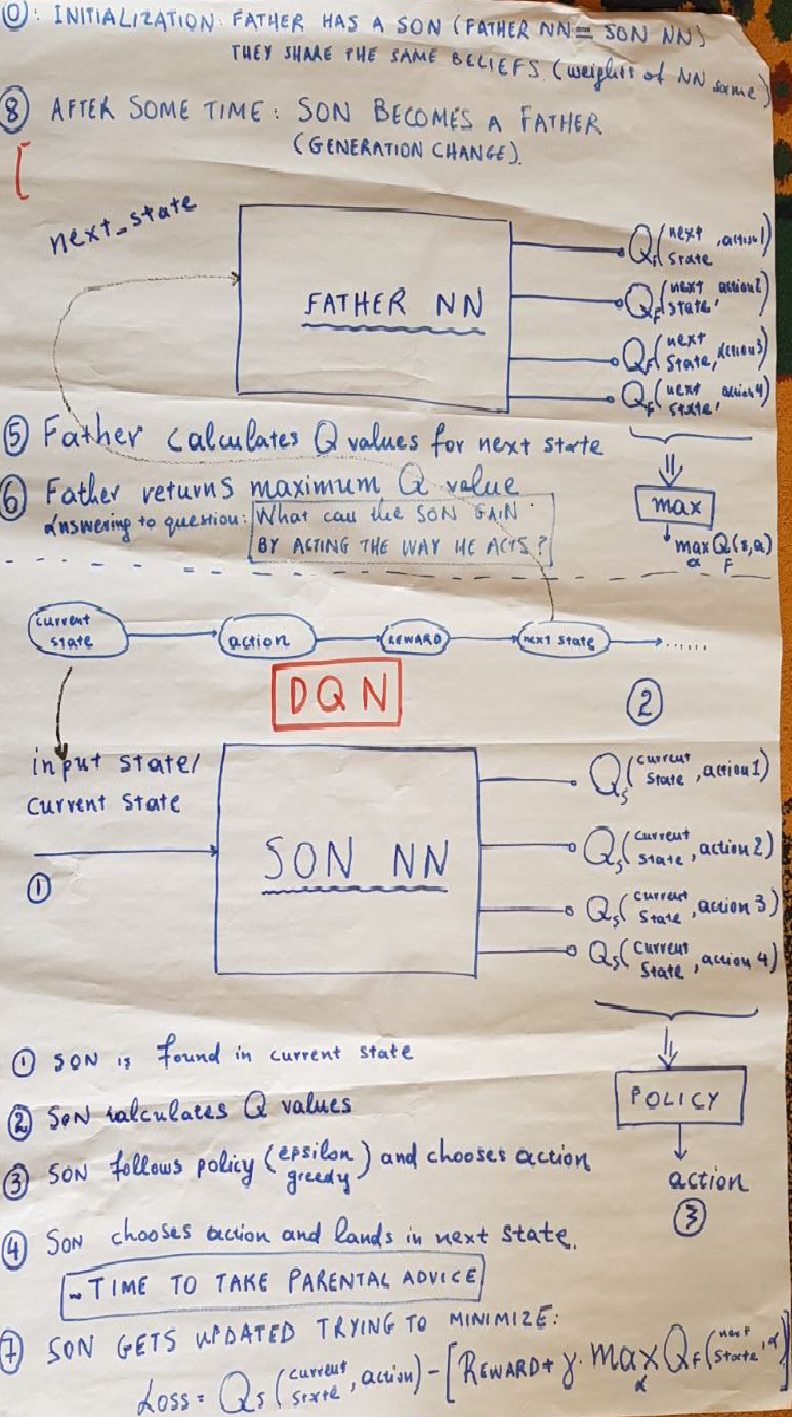 (0): INITIALIZATION: FATHER HAS A SON (FATHER NN = SON NN)
THEY SHARE THE SAME BELIEFS. (weights of NN same)
(8) AFTER SOME TIME: SON BECOMES A FATHER
(GENERATION CHANGE).
[
next_state
FATHER NN
Q_F(next state, action1)
Q_F(next state, action2)
Q_F(next state, action3)
Q_F(next state, action4)
(5) Father calculates Q values for next state
(6) Father returns maximum Q value
Answering to question: What can the SON GAIN
BY ACTING THE WAY HE ACTS?
max
max_a Q_F(s,a)
current state
action
REWARD
next state
......
DQN
(2)
input state/
current state
(1)
SON NN
Q_S(current state, action1)
Q_S(current state, action 2)
Q_S(current state, action 3)
Q_S(current state, action 4)
(1) SON is found in current state
(2) SON calculates Q values
(3) SON follows policy (epsilon greedy) and chooses action
POLICY
action
(3)
(4) SON chooses action and lands in next state.
~ TIME TO TAKE PARENTAL ADVICE
(7) SON GETS UPDATED TRYING TO MINIMIZE:
Loss = Q_S(current state, action) - [REWARD + γ · max_a Q_F(next state, a)]